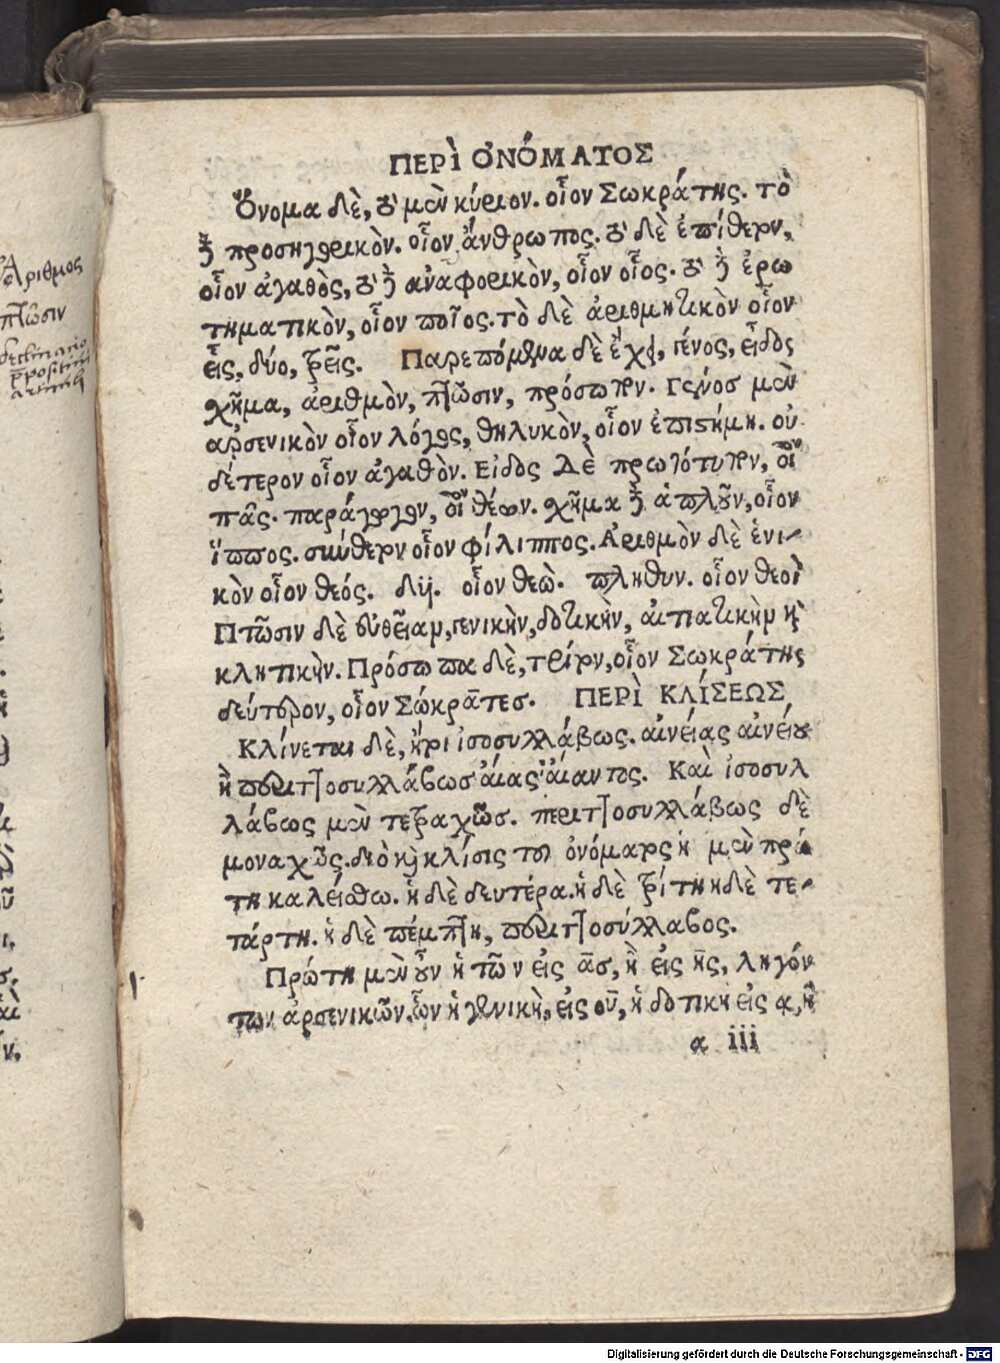 Ἀριθμος
πτῶσιν
declinatio
ΠΕΡῚ ΟΝΌΜΑΤΟΣ
Ὄνομα δὲ, τὸ μὲν κύριον. οἷον Σωκράτης. τὸ
δὲ προσηγορικὸν. οἷον ἄνθρωπος. τὸ δὲ ἐπίθετον,
οἷον ἀγαθὸς, τὸ δὲ ἀναφορικὸν, οἷον οἷος. τὸ δὲ ἐρω
τηματικὸν, οἷον ποῖος. τὸ δὲ ἀριθμητικὸν οἷον
εἷς, δύο, τρεῖς. Παρεπόμενα δὲ ἔχει, γένος, εἶδος
σχῆμα, ἀριθμὸν, πτῶσιν, πρόσωπον. Γένοσ μὲν
ἀρσενικὸν οἷον λόγος, θηλυκὸν, οἷον ἐπιστήμη. οὐ
δέτερον οἷον ἀγαθὸν. Εἶδος Δὲ πρωτότυπον, οἷον
πᾶς. παράγωγον, οἷον θέων. σχῆμα δὲ ἁπλοῦν, οἷον
ἵππος. σύνθετον οἷον φίλιππος. Ἀριθμὸν δὲ ἑνι-
κὸν οἷον θεός. δυϊ. οἷον θεὼ. πληθυν. οἷον θεοὶ
Πτῶσιν δὲ εὐθεῖαν, γενικὴν, δοτικὴν, αἰτιατικὴν καὶ
κλητικὴν. Πρόσωπα δὲ, τρίτον, οἷον Σωκράτης
δεύτερον, οἷον Σώκρατες. ΠΕΡῚ ΚΛΊΣΕΩΣ
Κλίνεται δὲ, ἤτοι ἰσοσυλλάβως. αἰνείας αἰνείου
ἢ περιττοσυλλάβωσ αἴας αἴαντος. Καὶ ἰσοσυλ
λάβως μὲν τετραχῶσ. περιττοσυλλάβως δὲ
μοναχῶς. διὸ καὶ κλίσις τοῦ ὀνόματος ἡ μὲν πρώ
τη καλείσθω. ἡ δὲ δευτέρα. ἡ δὲ τρίτη ἡ δὲ τε-
τάρτη. ἡ δὲ πέμπτη, περιττοσύλλαβος.
Πρώτη μὲν οὖν ἡ τῶν εἰς ᾱσ, ἢ εἰς η̄ς, ληγόν
των ἀρσενικῶν. ὧν ἡ γενικὴ, εἰς ου̅, ἡ δοτικὴ εἰς ᾳ, ἢ
α iii
Digitalisierung gefördert durch die Deutsche Forschungsgemeinschaft - DFG